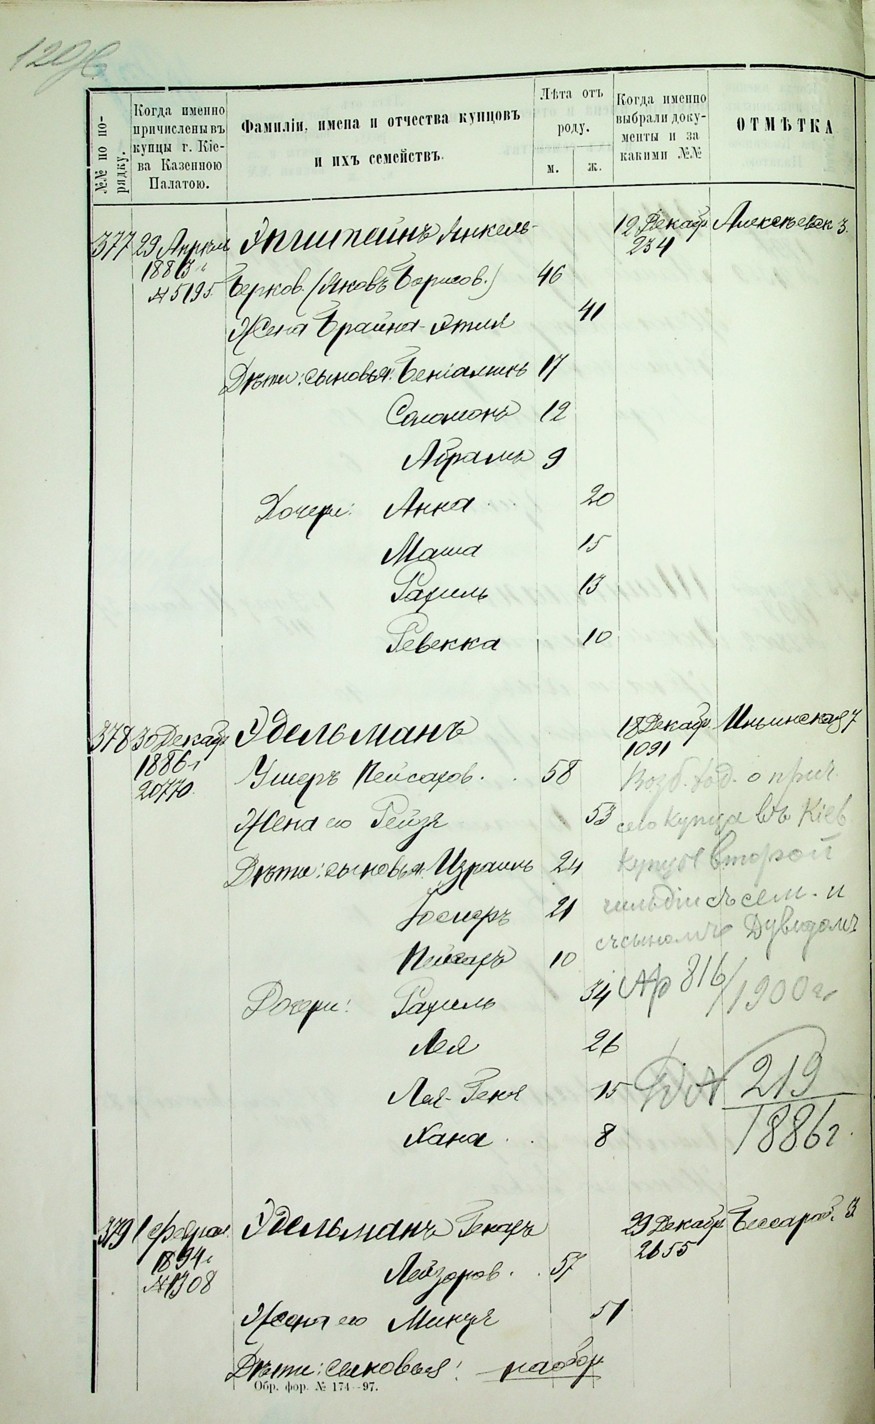 №№ по порядку.
Когда именно причислены въ купцы г. Кіева Казенною Палатою.
Фамиліи, имена и отчества купцовъ и ихъ семействъ.
Лѣта отъ роду.
м. ж.
Когда именно выбрали документы и за какими №№
ОТМѢТКА
377 29 Апрѣля Эпштейнъ Янкель- 12 Декабр Алексѣевск 3.
1883 г 234
№ 5195. Берков. (Яковъ Борисов.) 46
Жена Брайна-Этля 41
Дѣти: сыновья: Беніаминъ 17
Соломонъ 12
Абрамъ 9
Дочери: Анна 20
Маша 15
Рахиль 13
Ревекка 10
378 30 Декабр Эдельманъ 18 Декабр. Ильинская 7
1886 г 1091
20770. Ушеръ Пейсахов. 58 Возб. ход. о прич.
Жена его Рейзя 53 купца въ Кіев
Дѣти: сыновья: Израиль 24 купцы второй
Іосифъ 21 гильдіи съ сем. и
съ сыномъ Дувидомъ
Пейсахъ 10
Дочери: Рахиль 34 816/1900 г.
Лея 26
Лея-Геня 15 219
Хана 8 1886 г.
379 1 Феврал. Эдельманъ 29 Декабр Бессараб. 3
1894 г 2655
№ 1308 Лейзоров. 57
Жена его Минця 51
Дѣти: сыновья: на обор
Обр. фор. № 174—97.